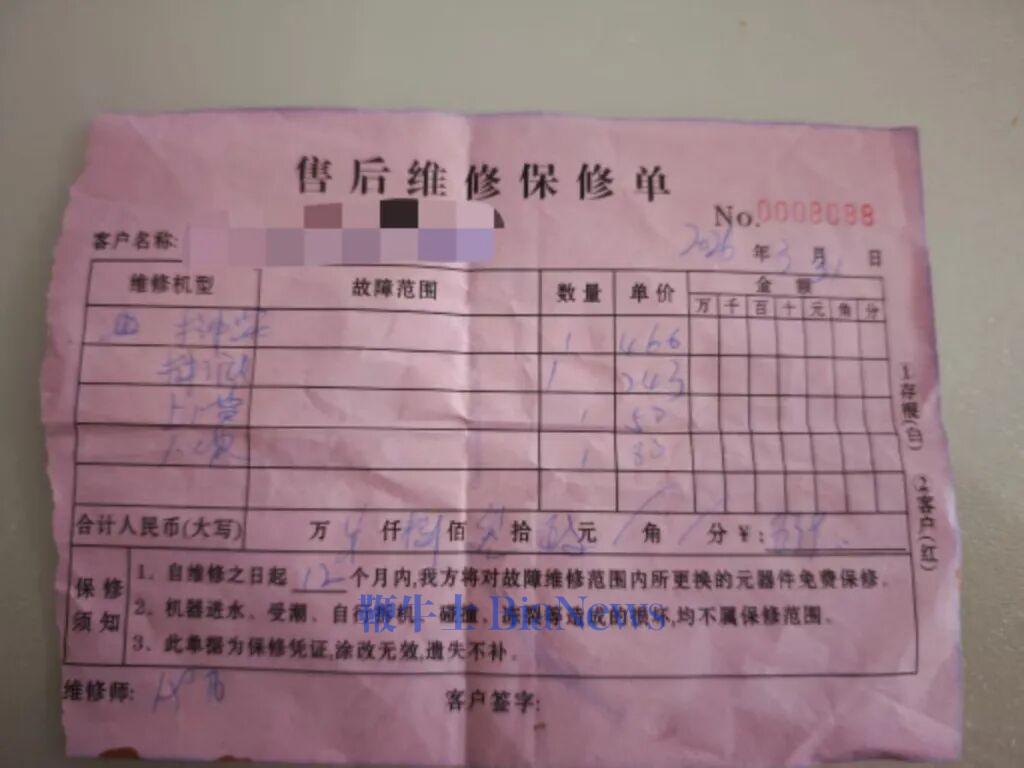 售后维修保修单
No.0008088
客户名称: 2026年3月31日
维修机型 故障范围 数量 单价 金额
万 千 百 十 元 角 分
1 466
1 243
上门费 1 50
1 80
合计人民币(大写) 万 仟 佰 拾 元 角 分 ¥:
保修须知
1、自维修之日起12个月内,我方将对故障维修范围内所更换的元器件免费保修。
2、机器进水、受潮、自行拆机、碰撞、冻裂等造成的损坏,均不属保修范围。
3、此单据为保修凭证,涂改无效,遗失不补。
维修师: 客户签字:
1.存根(白) 2.客户(红)
鞭牛士 BiaNews